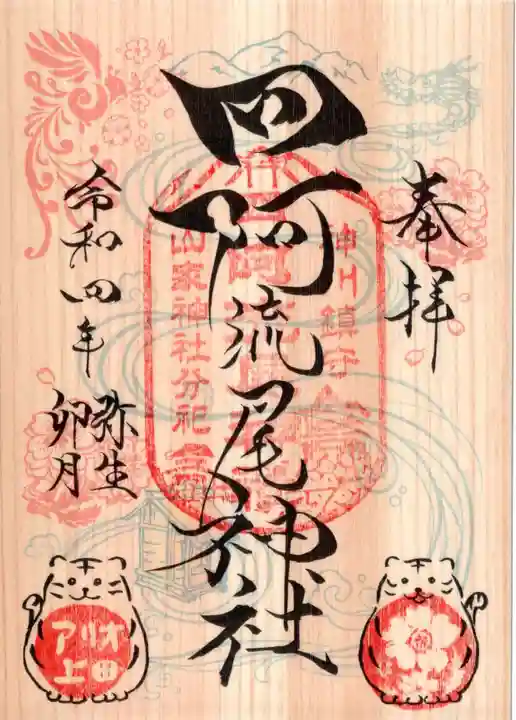 奉拝
四阿流尾神社
令和四年
弥生
卯月
神川鎮守
山家神社分祀
アリオ
上田